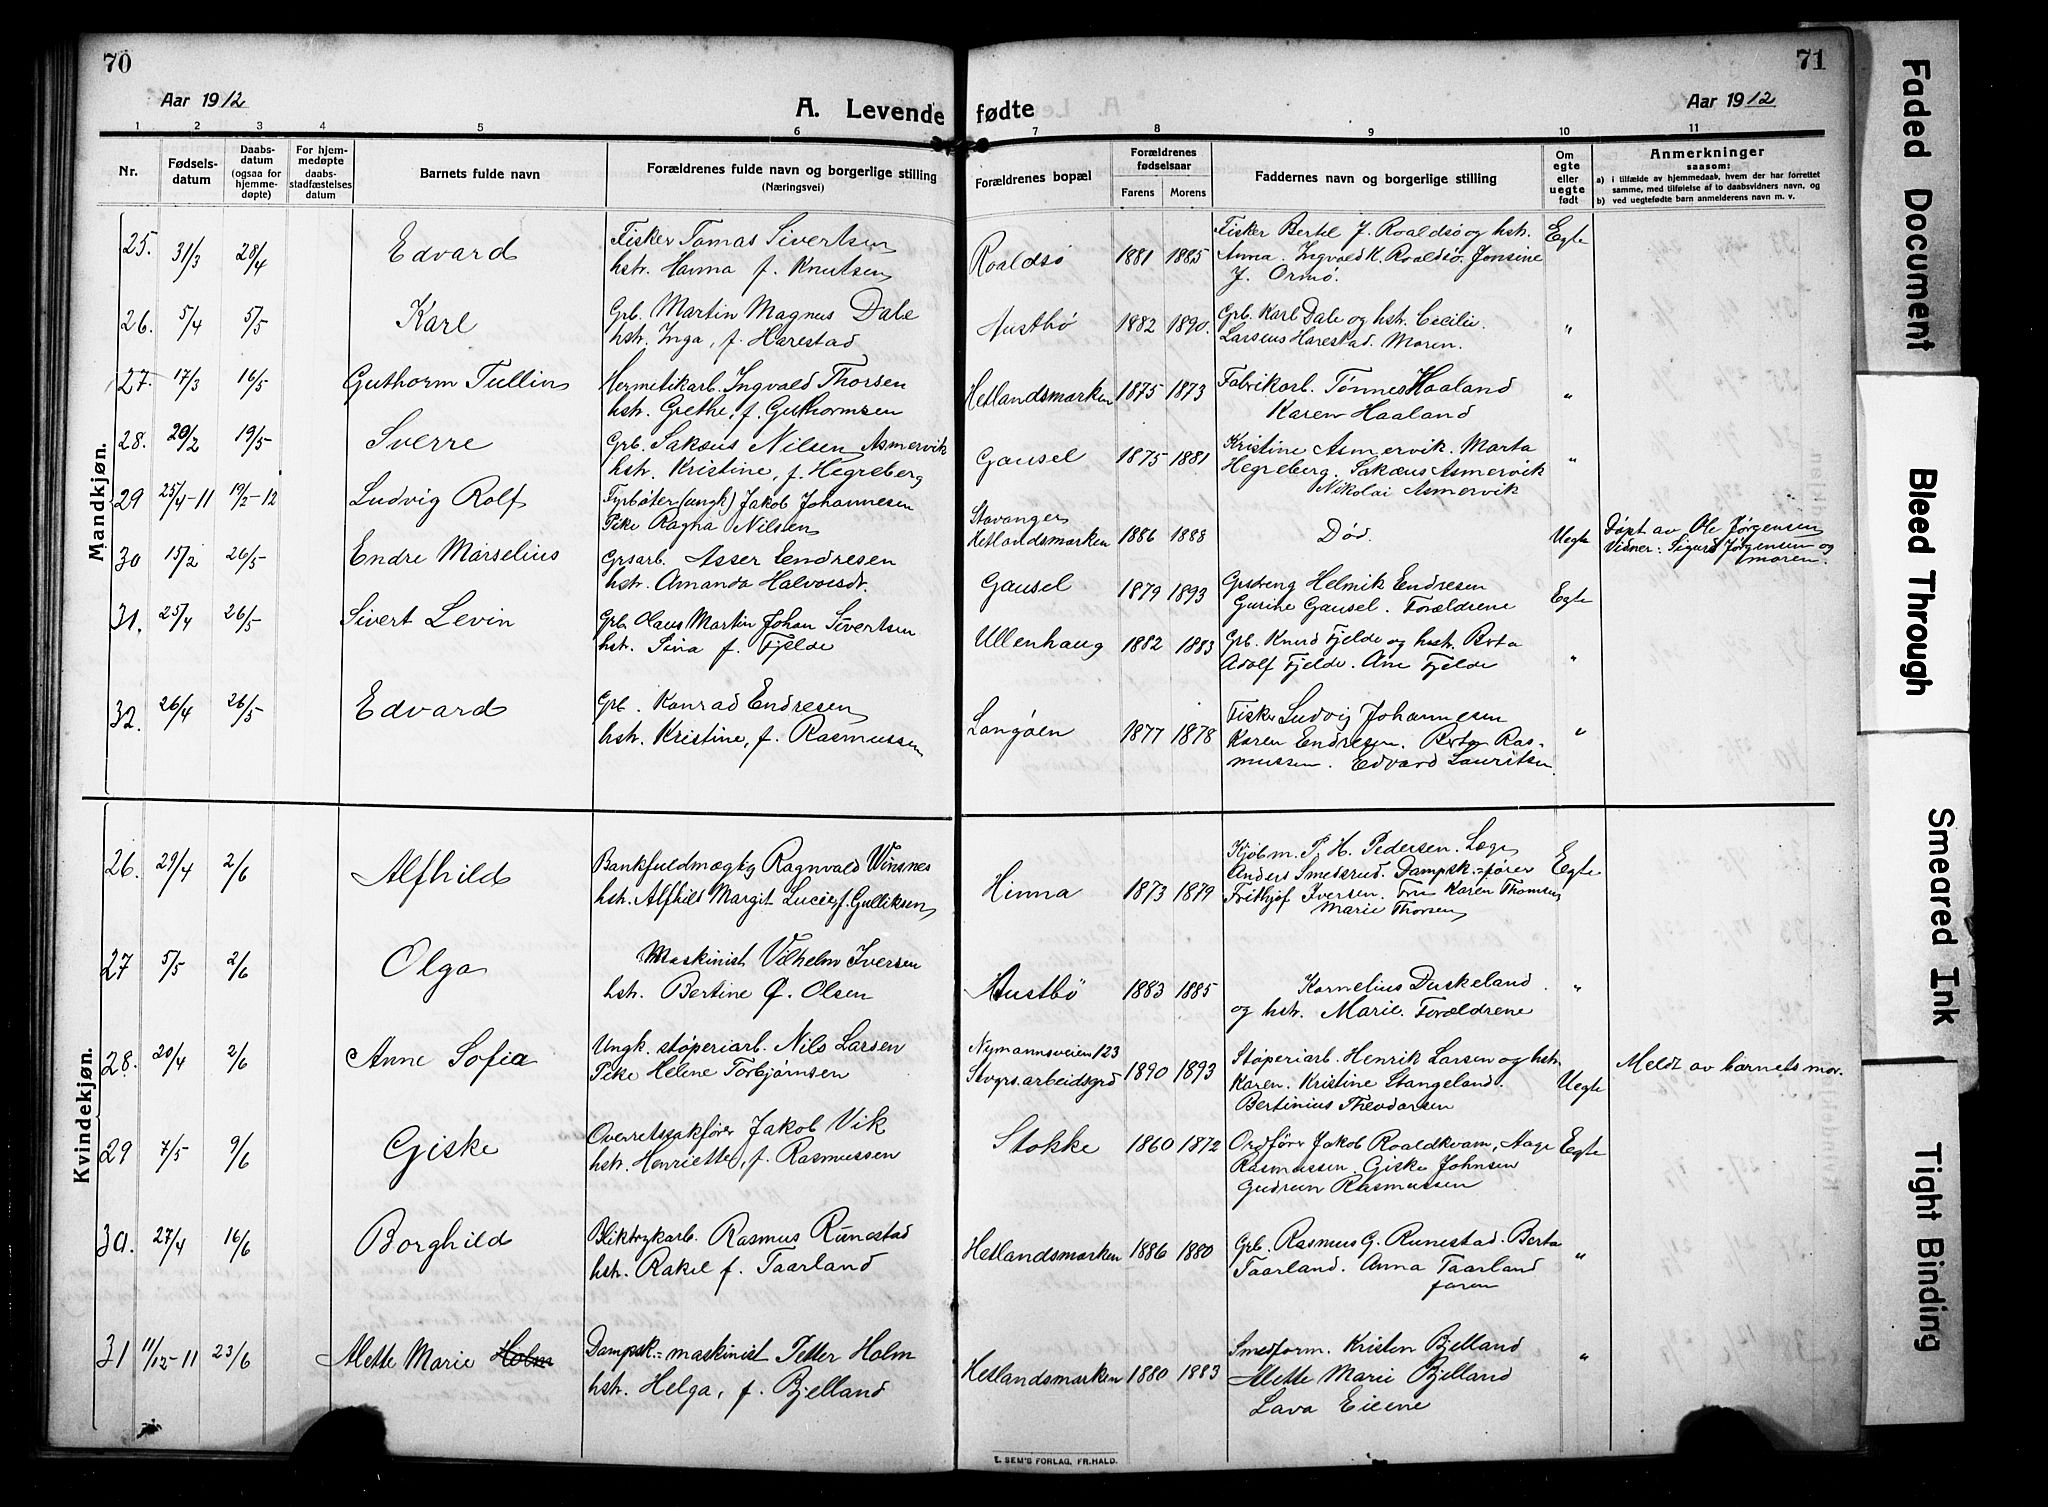 70
Aar 1912
A. Levende
1 2 3 4 5 6
Nr.
Fødsels-
datum
Daabs-
datum
(ogsaa for
hjemme-
døpte)
For hjem-
medøpte
daabs-
stadfæstelses
datum
Barnets fulde navn
Forældrenes fulde navn og borgerlige stilling
(Næringsvei)
Mandkjøn.
25. 31/3 28/4 Edvard
Fisker Tomas Sivertsen
hstr. Hanna f. Knutsen
26. 5/4 5/5 Karl
Grb. Martin Magnus Dale
hstr. Inga, f. Harestad
27. 17/3 16/5 Guthorm Tullin
Hermetikarb. Ingvald Thorsen
hstr. Grethe, f. Guthormsen
28. 20/2 19/5 Sverre
Grb. Sakæus Nilsen Asmervik
hstr. Kristine, f. Hegreberg
29 25/4-11 19/2-12 Ludvig Rolf
Fyrbøter (ungk) Jakob Johannesen
Pike Ragna Nilsen
30 15/2 26/5 Endre Marselius
Grsarb. Asser Endresen
hstr. Amanda Halvorsdr.
31. 25/4 26/5 Sivert Levin
Grb. Olaus Martin Johan Sivertsen
hstr. Sina f. Fjelde
32. 26/4 26/5 Edvard
Grb. Konrad Endresen
hstr. Kristine, f. Rasmussen
Kvindekjøn.
26. 29/4 2/6 Alfhild
Bankfuldmægtig Ragnvald Winsnes
hstr. Alfhild Margit Lucie, f. Gulliksen
27 5/5 2/6 Olga
Maskinist Vilhelm Iversen
hstr. Bertine Ø. Olsen
28. 20/4 2/6 Anne Sofia
Ungk. støperiarb. Nils Larsen
Pike Helene Torbjørnsen
29 7/5 9/6 Giske
Overretssakfører Jakob Vik
hstr. Henriette, f. Rasmussen
30. 27/4 16/6 Borghild
Bliktrykarb. Rasmus Runestad
hstr. Rakel f. Taarland
31 11/12-11 23/6 Alette Marie Holm
Dampsk.=maskinist Petter Holm
hstr. Helga, f. Bjelland
71
fødte
Aar 1912
7 8 9 10 11
Forældrenes bopæl
Forældrenes
fødselsaar
Farens Morens
Faddernes navn og borgerlige stilling
Om
egte
eller
uegte
født
Anmerkninger
saasom:
a) i tilfælde av hjemmedaab, hvem der har forrettet
samme, med tilføielse af to daabsvidners navn, og
b) ved uegtefødte barn anmelderens navn m. v.
Roaldsø 1881 1885
Fisker Bertel J. Roaldsø og hstr. Egte
Anna. Ingvald K. Roaldsø. Jonsine
J. Ormø.
Austbø 1882 1890.
Grb. Karl Dale og hstr. Cecilie. "
Larsens Harestad. Moren.
Hetlandsmarken 1875 1873
Fabrikarb. Tønnes Haaland "
Karen Haaland
Gausel 1875 1881
Kristine Asmervik. Marta "
Hegreberg. Sakæus Asmervik
Nikolai Asmervik
Stavanger
Hetlandsmarken 1886 1888 Død. Uegte
Døpt av Ole Jørgensen
Vidner: Sigurd Jørgensen og
moren.
Gausel 1879 1893
Grsdreng Helmik Endresen Egte
Gurine Gausel. Forældrene
Ullenhaug 1882 1883
Grb. Knud Fjelde og hstr. Berta "
Adolf Fjelde. Ane Fjelde
Langøen 1877 1878
Fisker Ludvig Johannesen "
Karen Endresen. Berta Ras-
mussen. Edvard Lauritsen.
Hinna 1873 1879
Kjøbm. P. H. Pedersen. Læge Egte
Anders Smedsrud. Dampsk.=fører
Frithjof Iversen. Fru Karen Thomsen
Marie Thorsen
Austbø 1883 1885
Kornelius Duskeland "
og hstr. Marie. Forældrene
Nymannsveien 123
Stvgrs. arbeidsgrd 1890 1893
Støperiarb. Henrik Larsen og hstr.
Karen. Kristine Stangeland. Uegte
Bertinius Theodorsen
Meldt av barnets mor.
Stokke 1860 1872
Ordfører Jakob Roaldkvam, Aage Egte
Rasmussen. Giske Johnsen
Gudrun Rasmussen
Hetlandsmarken 1886 1880
Grb. Rasmus G. Runestad. Berta "
Taarland. Anna Taarland
faren
Hetlandsmarken 1880 1883
Smedform. Kristen Bjelland "
Alette Marie Bjelland
Lava Eiene
E. SEM'S FORLAG, FR.HALD.
Faded Document
Bleed Through
Smeared Ink
Tight Binding